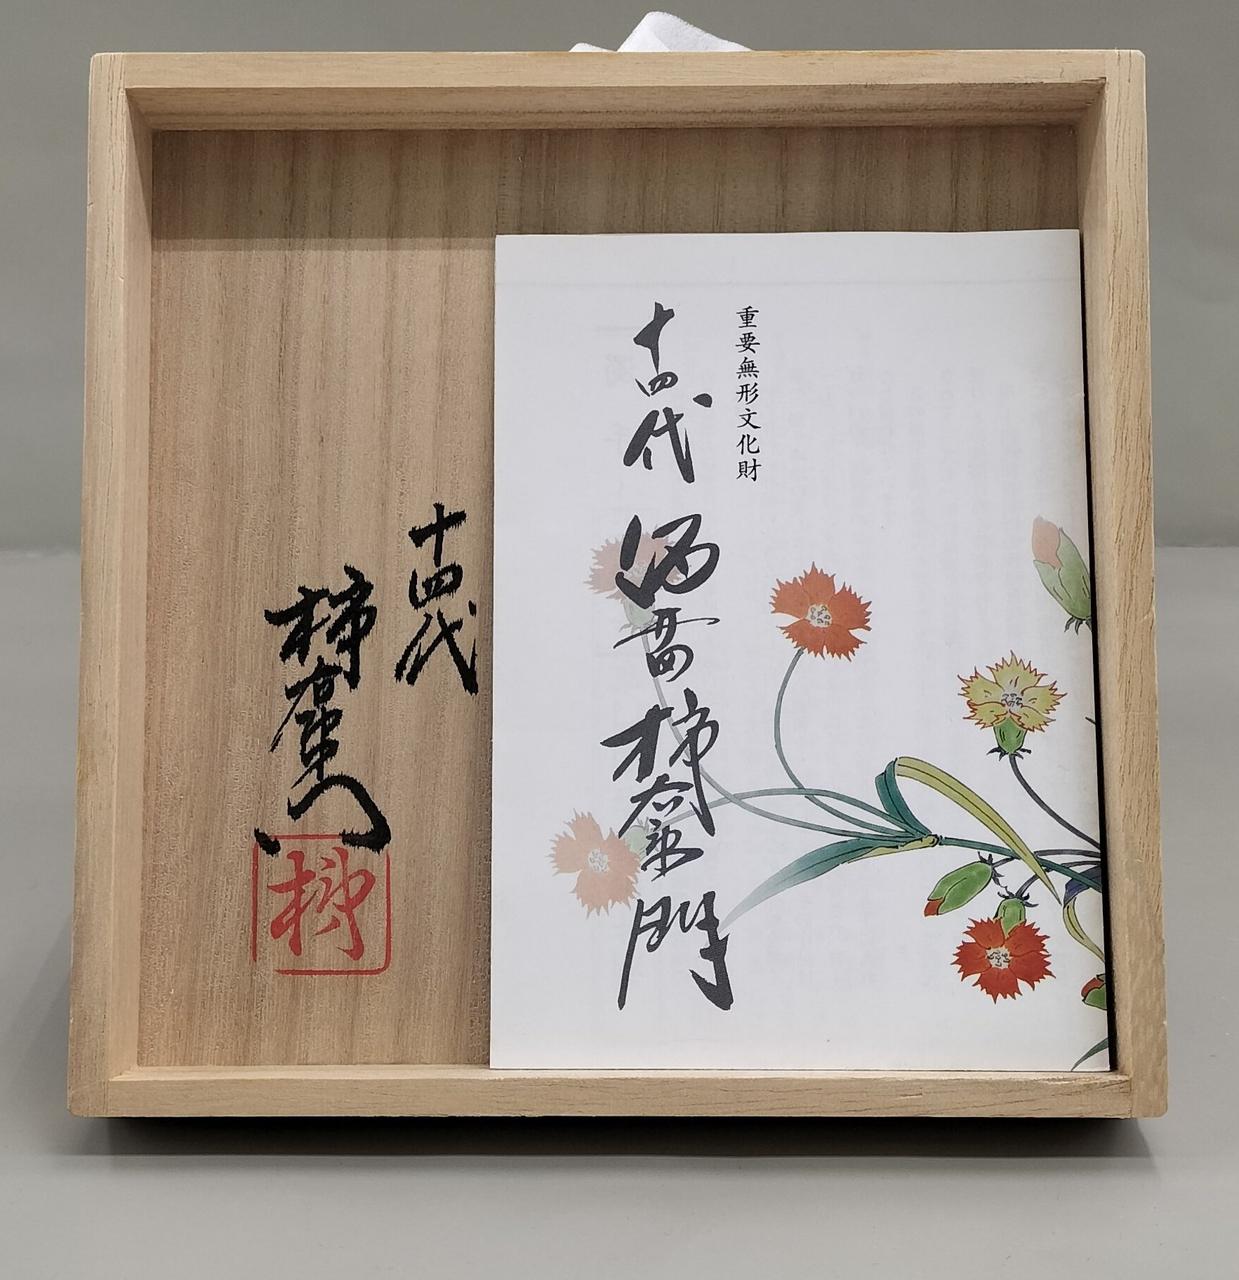 重要無形文化財
十四代 酒井田柿右衛門
十四代
柿右衛門
柿